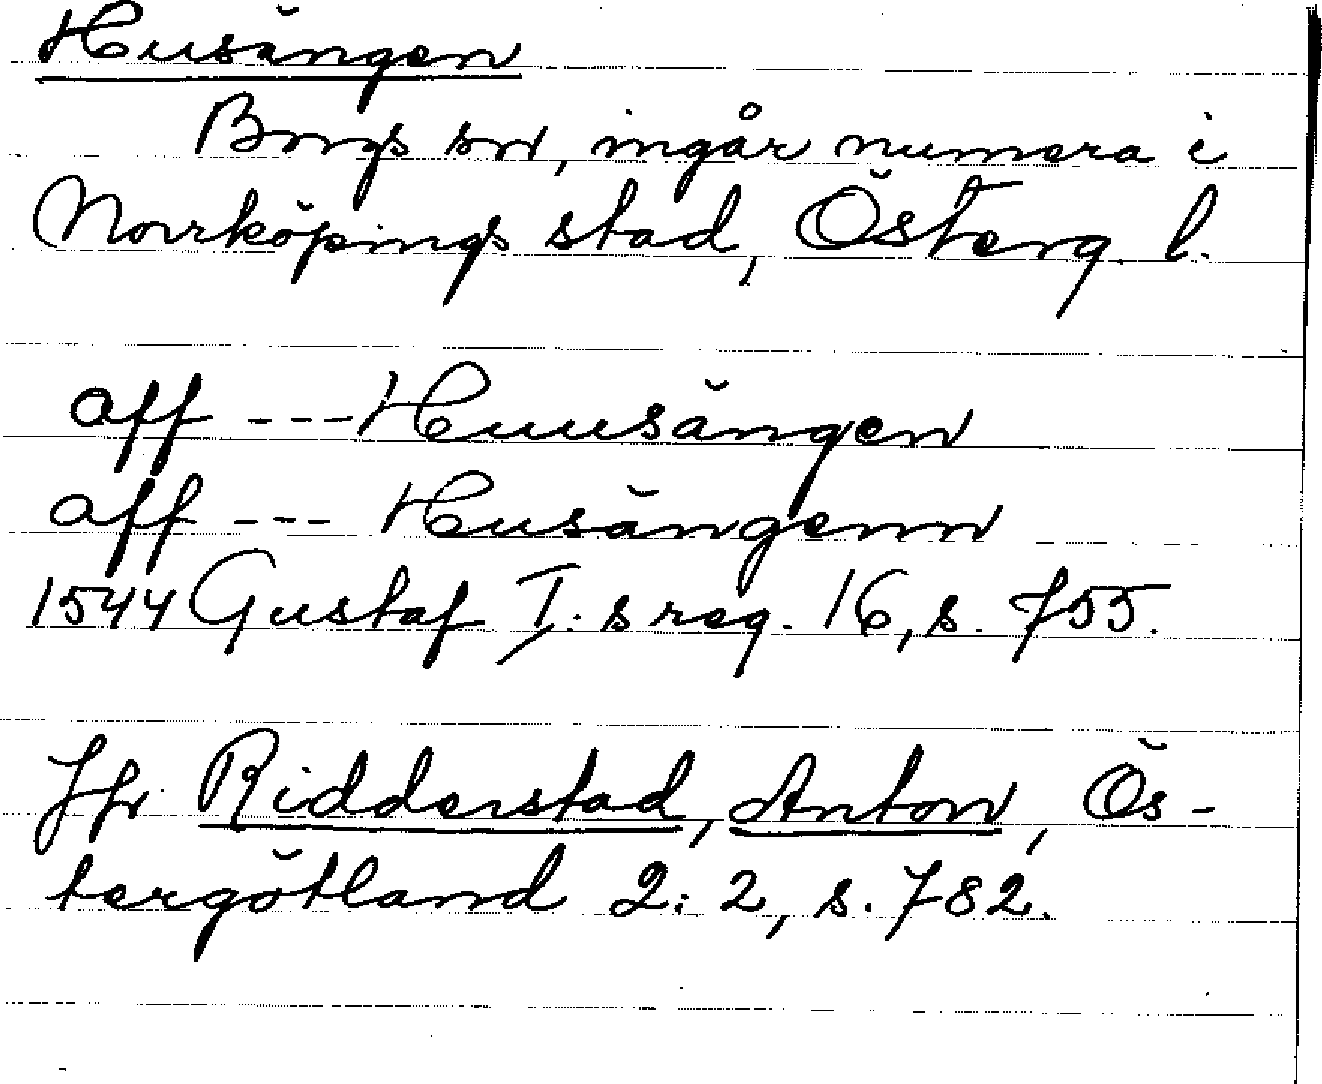 Husängen
Borgs sn, ingår numera i
Norrköpings stad, Österg. l.
aff --- Huusängen
aff --- Husängenn
1544 Gustaf I:s reg. 16, s. 755.
Jfr Ridderstad, Anton, Ös-
tergötland 2:2, s. 782.